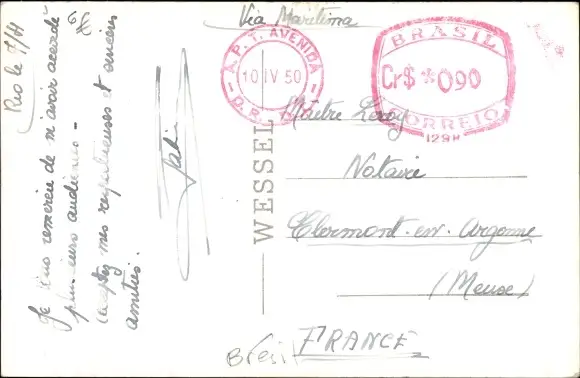 Via Maritima
A.P.T. AVENIDA
10 IV 50
D.R.
BRASIL
Cr$ *090
CORREIO
Rio le
Je vous remercie de m'avoir accordé
plusieurs audiences -
Acceptez mes respectueuses et anciennes
amitiés.
WESSEL
Maître Leroy
Notaire
Clermont-en-Argonne
(Meuse)
FRANCE
Brésil